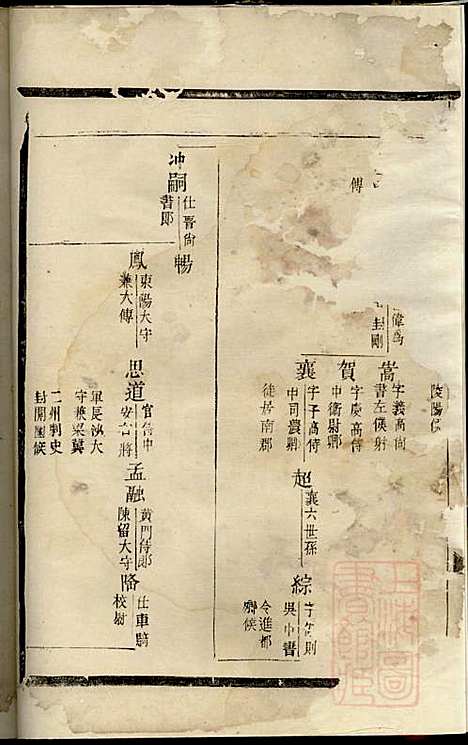 陵陽侯
嵩
字義高尚
書左僕射
賀
字慶高侍
中衛尉卿
襄
字子高侍
中司農卿
徙居南郡
封剛
傅
超
襄六世孫
綜
吳中書
令進都
鄉侯
冲嗣
仕晉尚
書郎
暢
鳳
東陽太守
兼太傅
思道
官侍中
安吉將
軍長沙太
守兼梁冀
二州刺史
封開國侯
孟融
黃門侍郎
陳留太守
隆
仕車騎
校尉